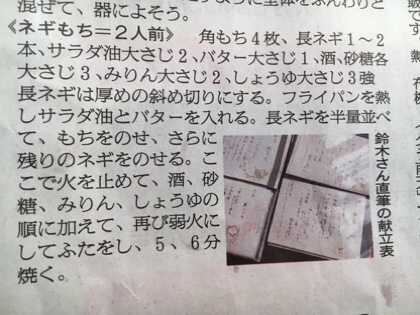 混ぜて、器によそう。
《ネギもち=2人前》 角もち4枚、長ネギ1〜2
本、サラダ油大さじ2、バター大さじ1、酒、砂糖各
大さじ3、みりん大さじ2、しょうゆ大さじ3強
長ネギは厚めの斜め切りにする。フライパンを熱
しサラダ油とバターを入れる。長ネギを半量並べ
て、もちをのせ、さらに
残りのネギをのせる。こ
こで火を止めて、酒、砂
糖、みりん、しょうゆの
順に加えて、再び弱火に
してふたをし、5、6分
焼く。
鈴木さん直筆の献立表